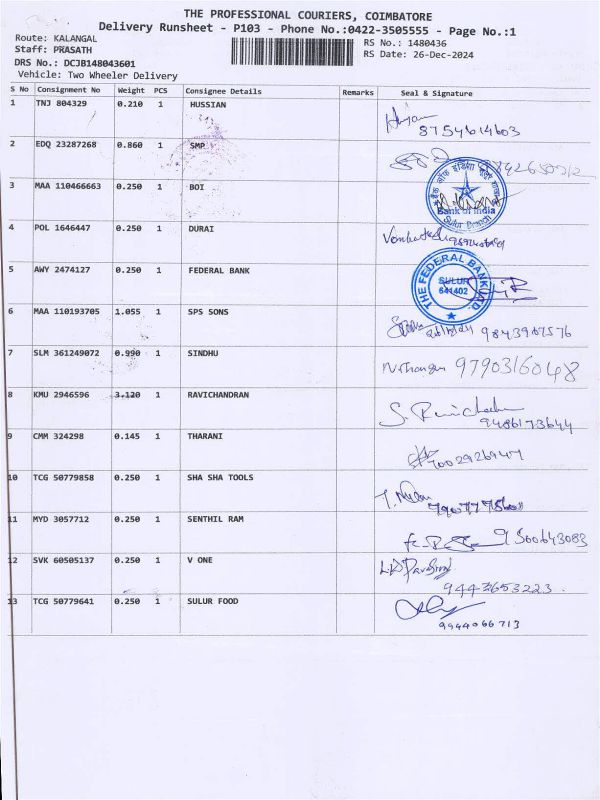 THE PROFESSIONAL COURIERS, COIMBATORE
Delivery Runsheet - P103 - Phone No.:0422-3505555 - Page No.:1
Route: KALANGAL
RS No.: 1480436
Staff: PRASATH
RS Date: 26-Dec-2024
DRS No.: DCJB148043601
Vehicle: Two Wheeler Delivery
S No Consignment No Weight PCS Consignee Details Remarks Seal & Signature
1 TNJ 804329 0.210 1 HUSSIAN 8754614603
2 EDQ 23287268 0.860 1 SMP
3 MAA 110466663 0.250 1 BOI
Bank of India
Sulur Branch
4 POL 1646447 0.250 1 DURAI
5 AWY 2474127 0.250 1 FEDERAL BANK
THE FEDERAL BANK LTD.
SULUR
641402
6 MAA 110193705 1.055 1 SPS SONS 9843907576
7 SLM 361249072 0.990 1 SINDHU 9790316048
8 KMU 2946596 3.120 1 RAVICHANDRAN
9486173644
9 CMM 324298 0.145 1 THARANI
7002926947
10 TCG 50779858 0.250 1 SHA SHA TOOLS
11 MYD 3057712 0.250 1 SENTHIL RAM 9500643083
12 SVK 60505137 0.250 1 V ONE
9443653223
13 TCG 50779641 0.250 1 SULUR FOOD
9944066713